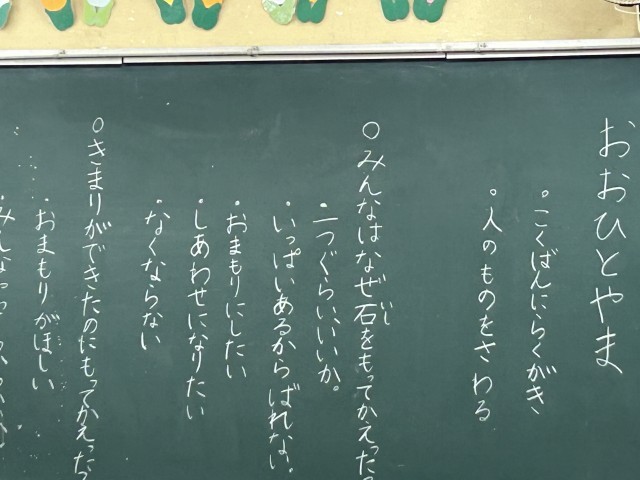 おおひとやま
・こくばんにらくがき
・人のものをさわる
○みんなはなぜ石をもってかえった
いし
・一つぐらいいいか。
・いっぱいあるからばれない。
・おまもりにしたい
・しあわせになりたい
・なくならない
○きまりができたのにもってかえった
・おまもりがほしい
・みんな